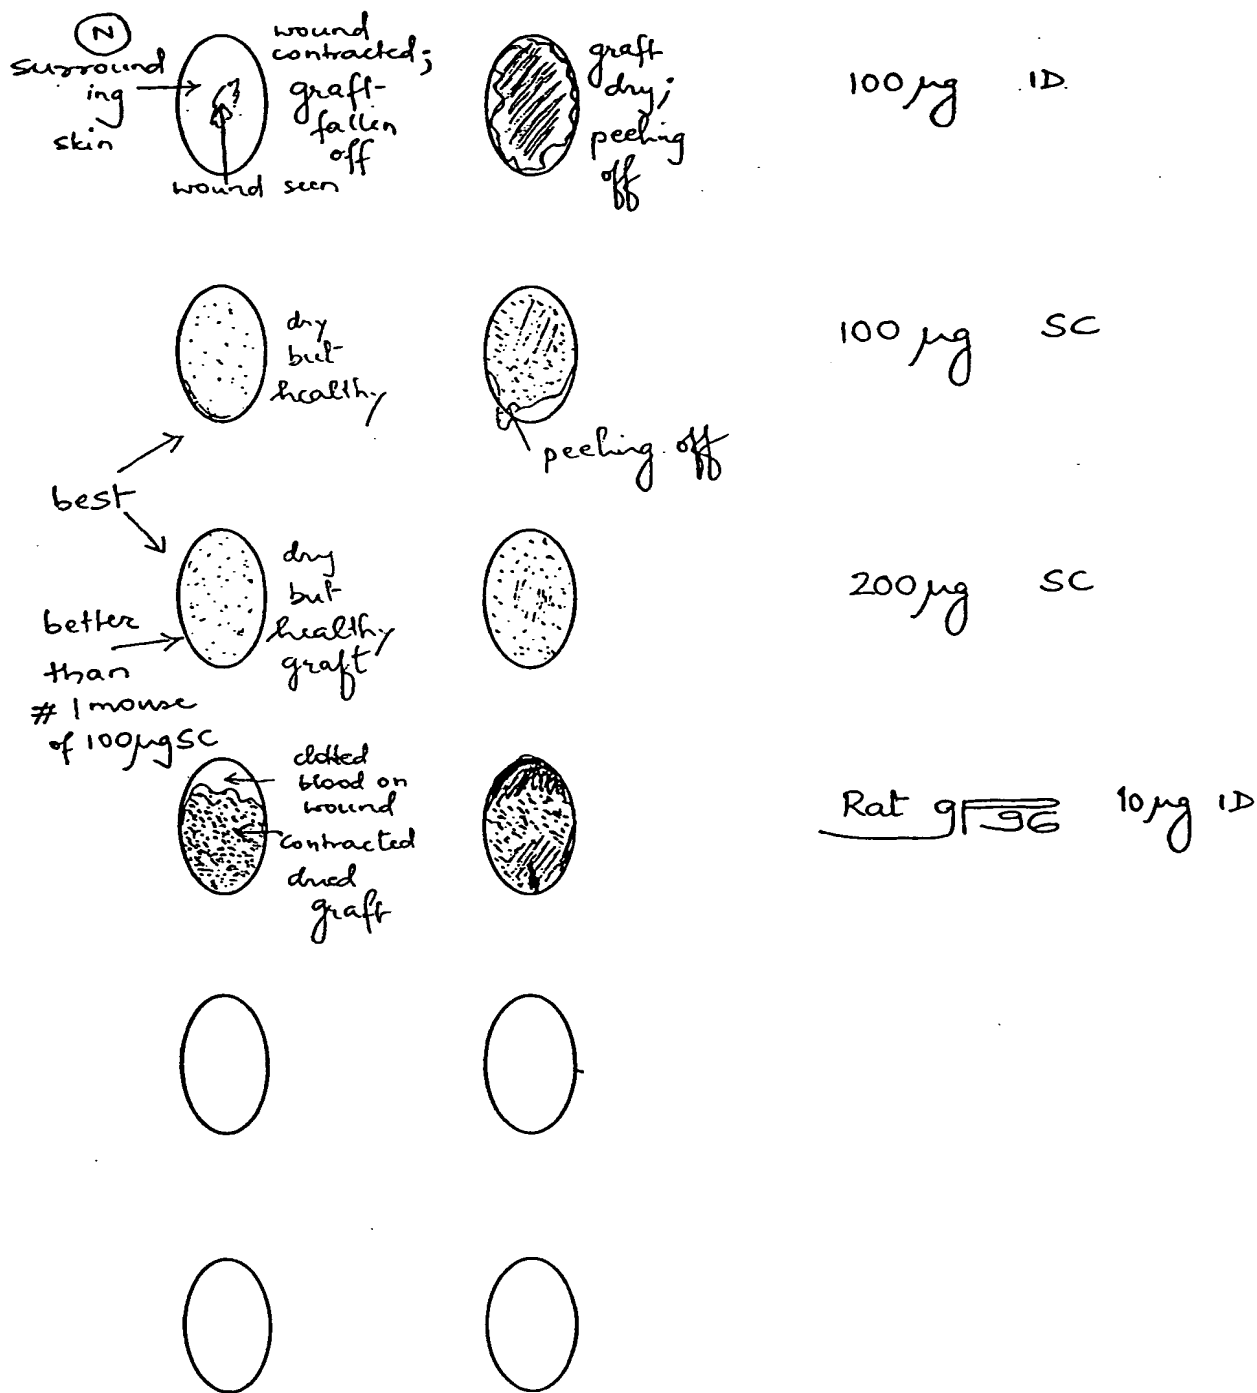 N
surround
ing
skin
wound
contracted;
graft-
fallen
off
wound seen
graft
dry;
peeling
off
100 µg ID
dry
but
healthy
peeling off
100 µg SC
best
dry
but
healthy
graft
200 µg SC
better
than
# 1 mouse
of 100µg SC
clotted
blood on
wound
contracted
dried
graft
Rat gp96 10 µg ID